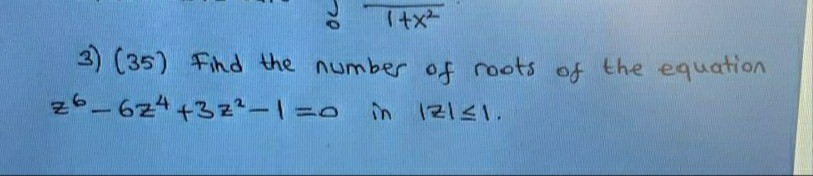 0 1+x²
3) (35) Find the number of roots of the equation
z⁶-6z⁴+3z²-1=0 in |z|≤1.